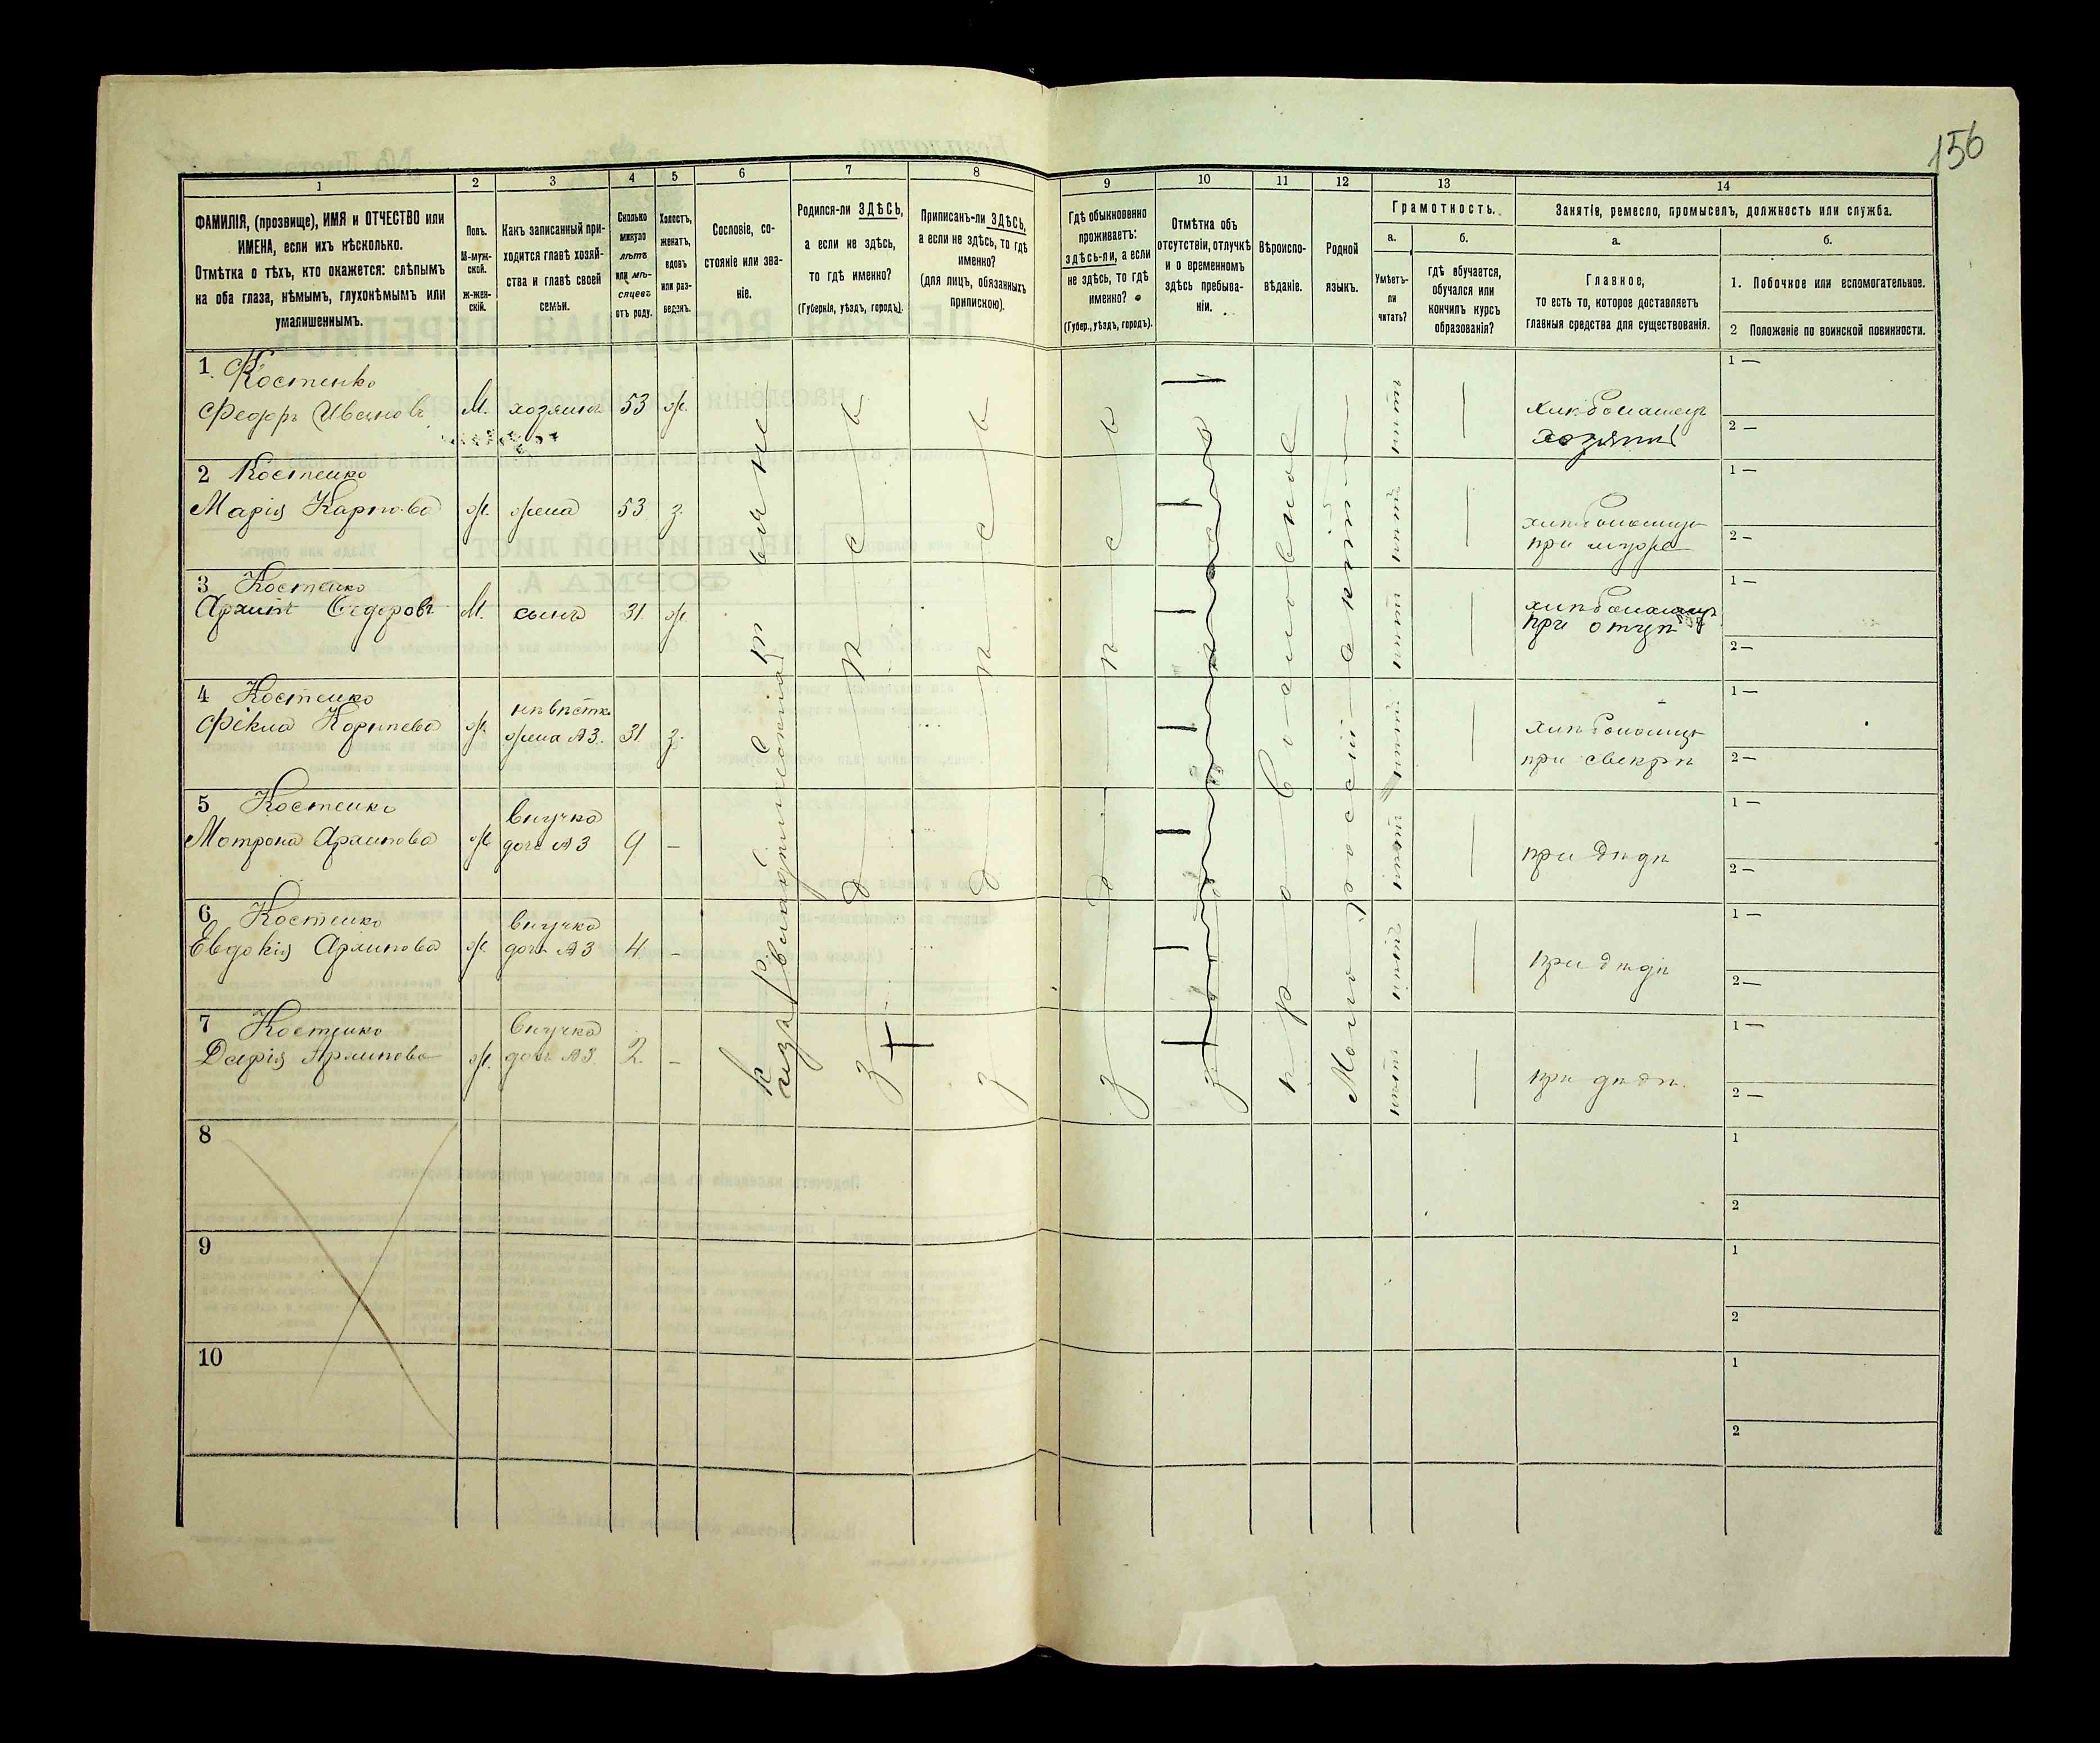 156
1
2
3
4
5
6
7
8
9
10
11
12
13
14
ФАМИЛІЯ, (прозвище), ИМЯ и ОТЧЕСТВО или
ИМЕНА, если ихъ нѣсколько.
Отмѣтка о тѣхъ, кто окажется: слѣпымъ
на оба глаза, нѣмымъ, глухонѣмымъ или
умалишеннымъ.
Полъ.
М-муж-
ской.
ж-жен-
скій.
Какъ записанный при-
ходится главѣ хозяй-
ства и главѣ своей
семьи.
Сколько
минуло
лѣтъ
или мѣ-
сяцевъ
отъ роду.
Холостъ,
женатъ,
вдовъ
или раз-
веденъ.
Сословіе, со-
стояніе или зва-
ніе.
Родился-ли ЗДѢСЬ,
а если не здѣсь,
то гдѣ именно?
(Губернія, уѣздъ, городъ).
Приписанъ-ли ЗДѢСЬ,
а если не здѣсь, то гдѣ
именно?
(для лицъ, обязанныхъ
припискою).
Гдѣ обыкновенно
проживаетъ:
здѣсь-ли, а если
не здѣсь, то гдѣ
именно?
(Губер., уѣздъ, городъ).
Отмѣтка объ
отсутствіи, отлучкѣ
и о временномъ
здѣсь пребыва-
ніи.
Вѣроиспо-
вѣданіе.
Родной
языкъ.
Грамотность.
а.
Умѣетъ-
ли
читать?
б.
гдѣ обучается,
обучался или
кончилъ курсъ
образованія?
Занятіе, ремесло, промыселъ, должность или служба.
а.
Главное,
то есть то, которое доставляетъ
главныя средства для существованія.
б.
1. Побочное или вспомогательное.
2 Положеніе по воинской повинности.
1 Костенко
Федоръ Ивановъ М. хозяинъ 53 ж.
хлѣбопашецъ
хозяинъ
1 —
2 —
2 Костенко
Марія Карпова ж. жена 53 з.
при мужѣ
1 —
2 —
3 Костенко
Архипъ Федоровъ М. сынъ 31 ж.
хлѣбопашецъ
при отцѣ
1 —
2 —
4 Костенко
невѣстка
Фекла Корнѣева ж. жена А3. 31 з.
при свекрѣ
1 —
2 —
5 Костенко
внучка
Мотрона Архипова ж. дочь А3 9 —
при дѣдѣ
1 —
2 —
6 Костенко
внучка
Евдокія Архипова ж. дочь А3 4 —
при дѣдѣ
1 —
2 —
7 Костенко
внучка
Дарія Архипова ж. дочь А3. 2. —
при дѣдѣ.
1 —
2 —
крестьяне
здѣсь
здѣсь
здѣсь
православное
Малороссійскій
8
1
2
9
1
2
10
1
2